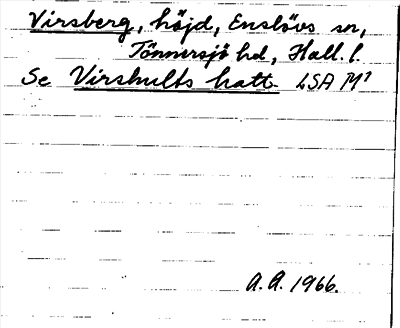 Virsberg, höjd, Enslövs sn,
Tönnersjö hd, Hall. l.
Se Virshults hatt LSA M¹
A.A. 1966.